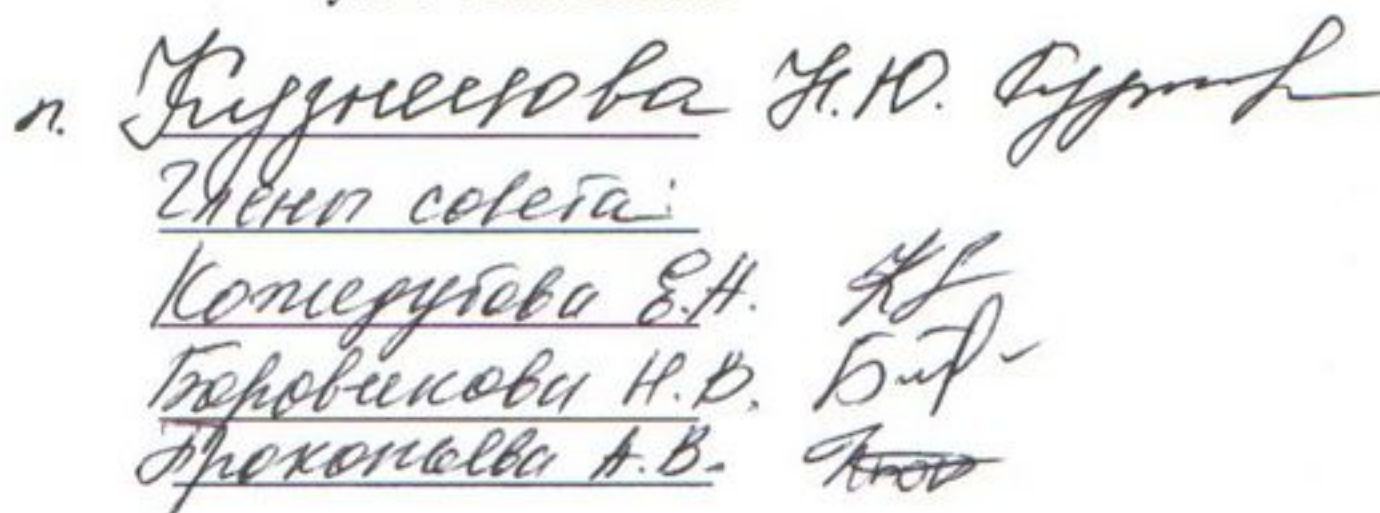 п. Кузнецова Н.Ю.
Члены совета:
Кожедубова Е.Н.
Боровикова Н.В.
Прокопьева А.В.